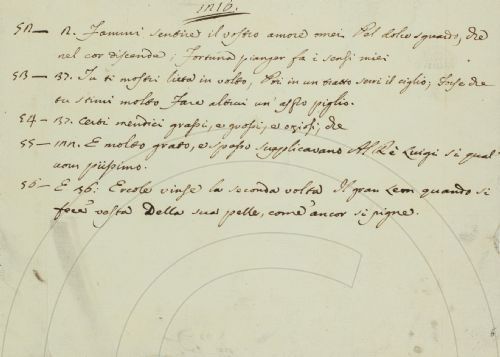 1816.
52 — 12. Fammi sentire il vostro amore omei Pel dolce sguardo, che
nel cor discende; Fortuna pianger fa i sensi miei
53 — 37. Tu ti mostri lieta in volto, Poi in un tratto seri il ciglio; Forse che
tu stimi molto Fare altrui un' aspro piglio.
54 — 37. Certi mendici grassi, e grossi, e oziosi, che
55 — E molto grato, e spesso supplicavano Al Rè Luigi si qual
uom piissimo.
56 — E 36: Ercole vinse la seconda volta Il gran Leon quando si
fece vesta Della sua pelle, come ancor si pigne.